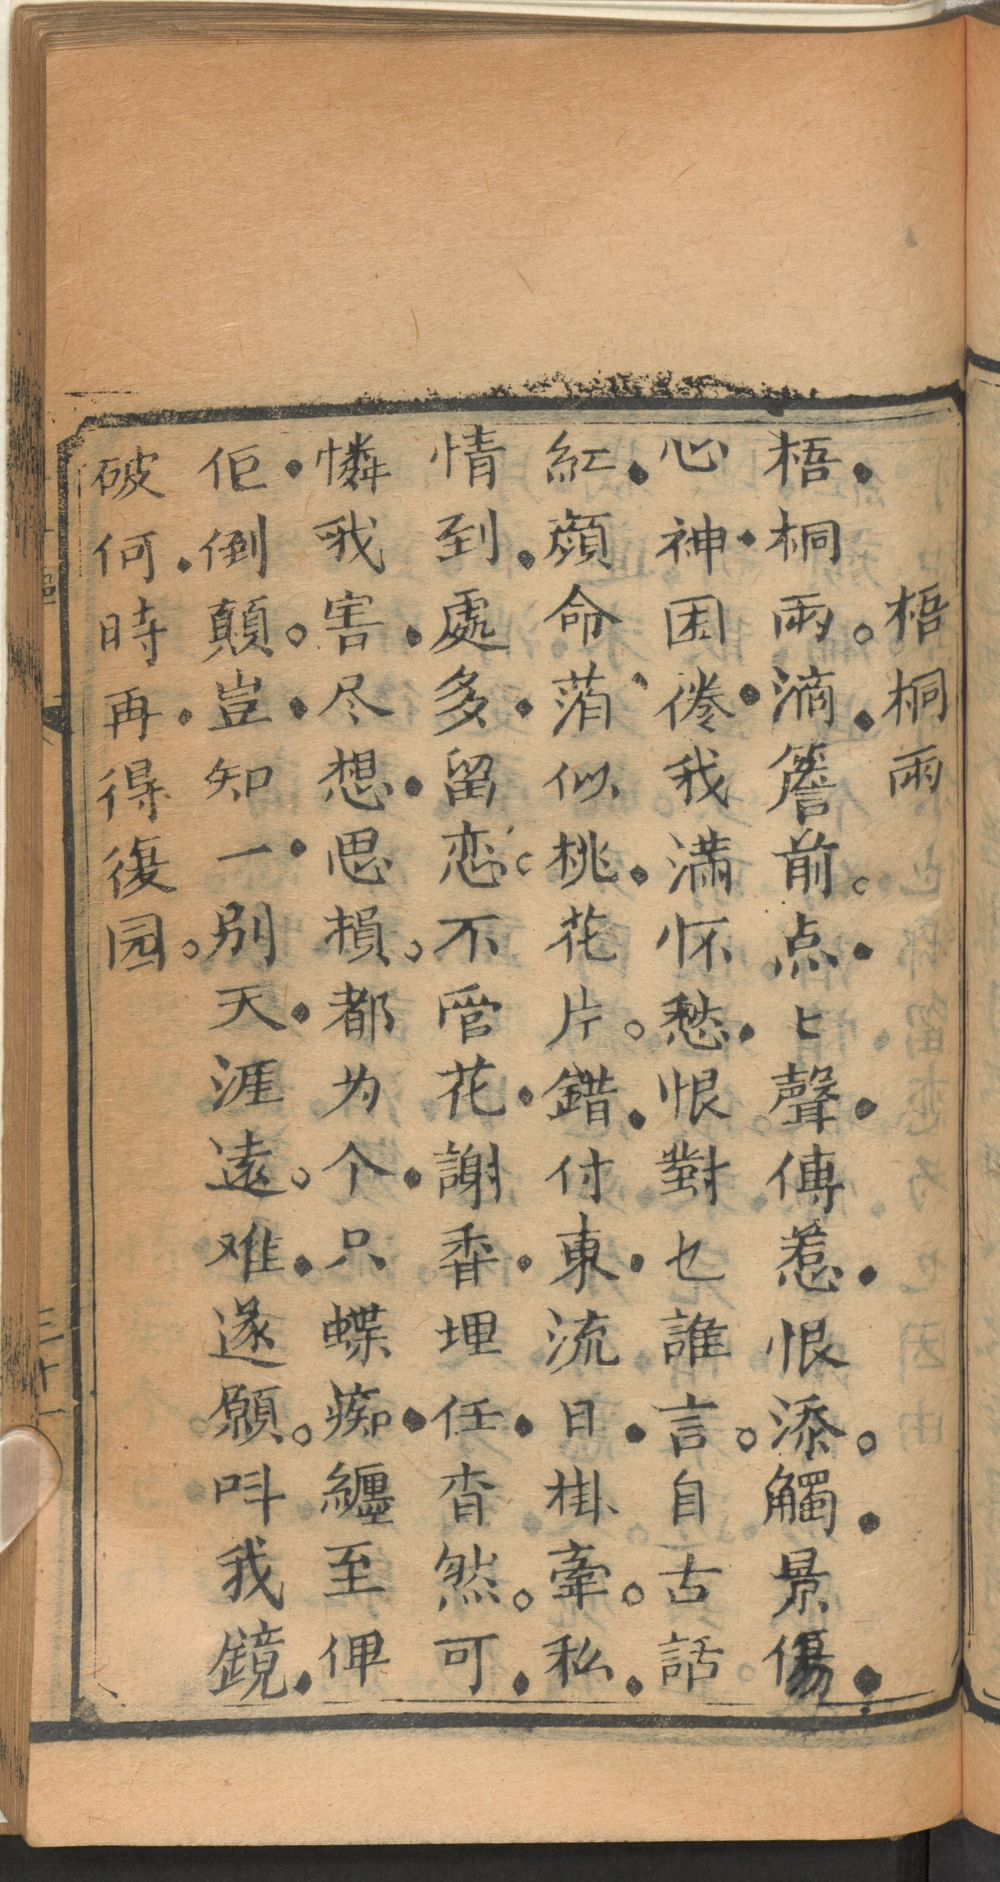 梧桐雨
梧桐雨。滴簷前。点〻聲傳惹恨添。觸景傷
心神困倦我滿怀愁恨對乜誰言。自古話
紅顏命薄似桃花片。錯付東流日掛牽。私
情到處多留恋。不管花謝香埋任杳然。可
憐我害尽想思損。都为个只蝶痴纏至俾
佢倒顛。豈知一別天涯遠。难遂願。呌我鏡
破何時再得復园。
三十一